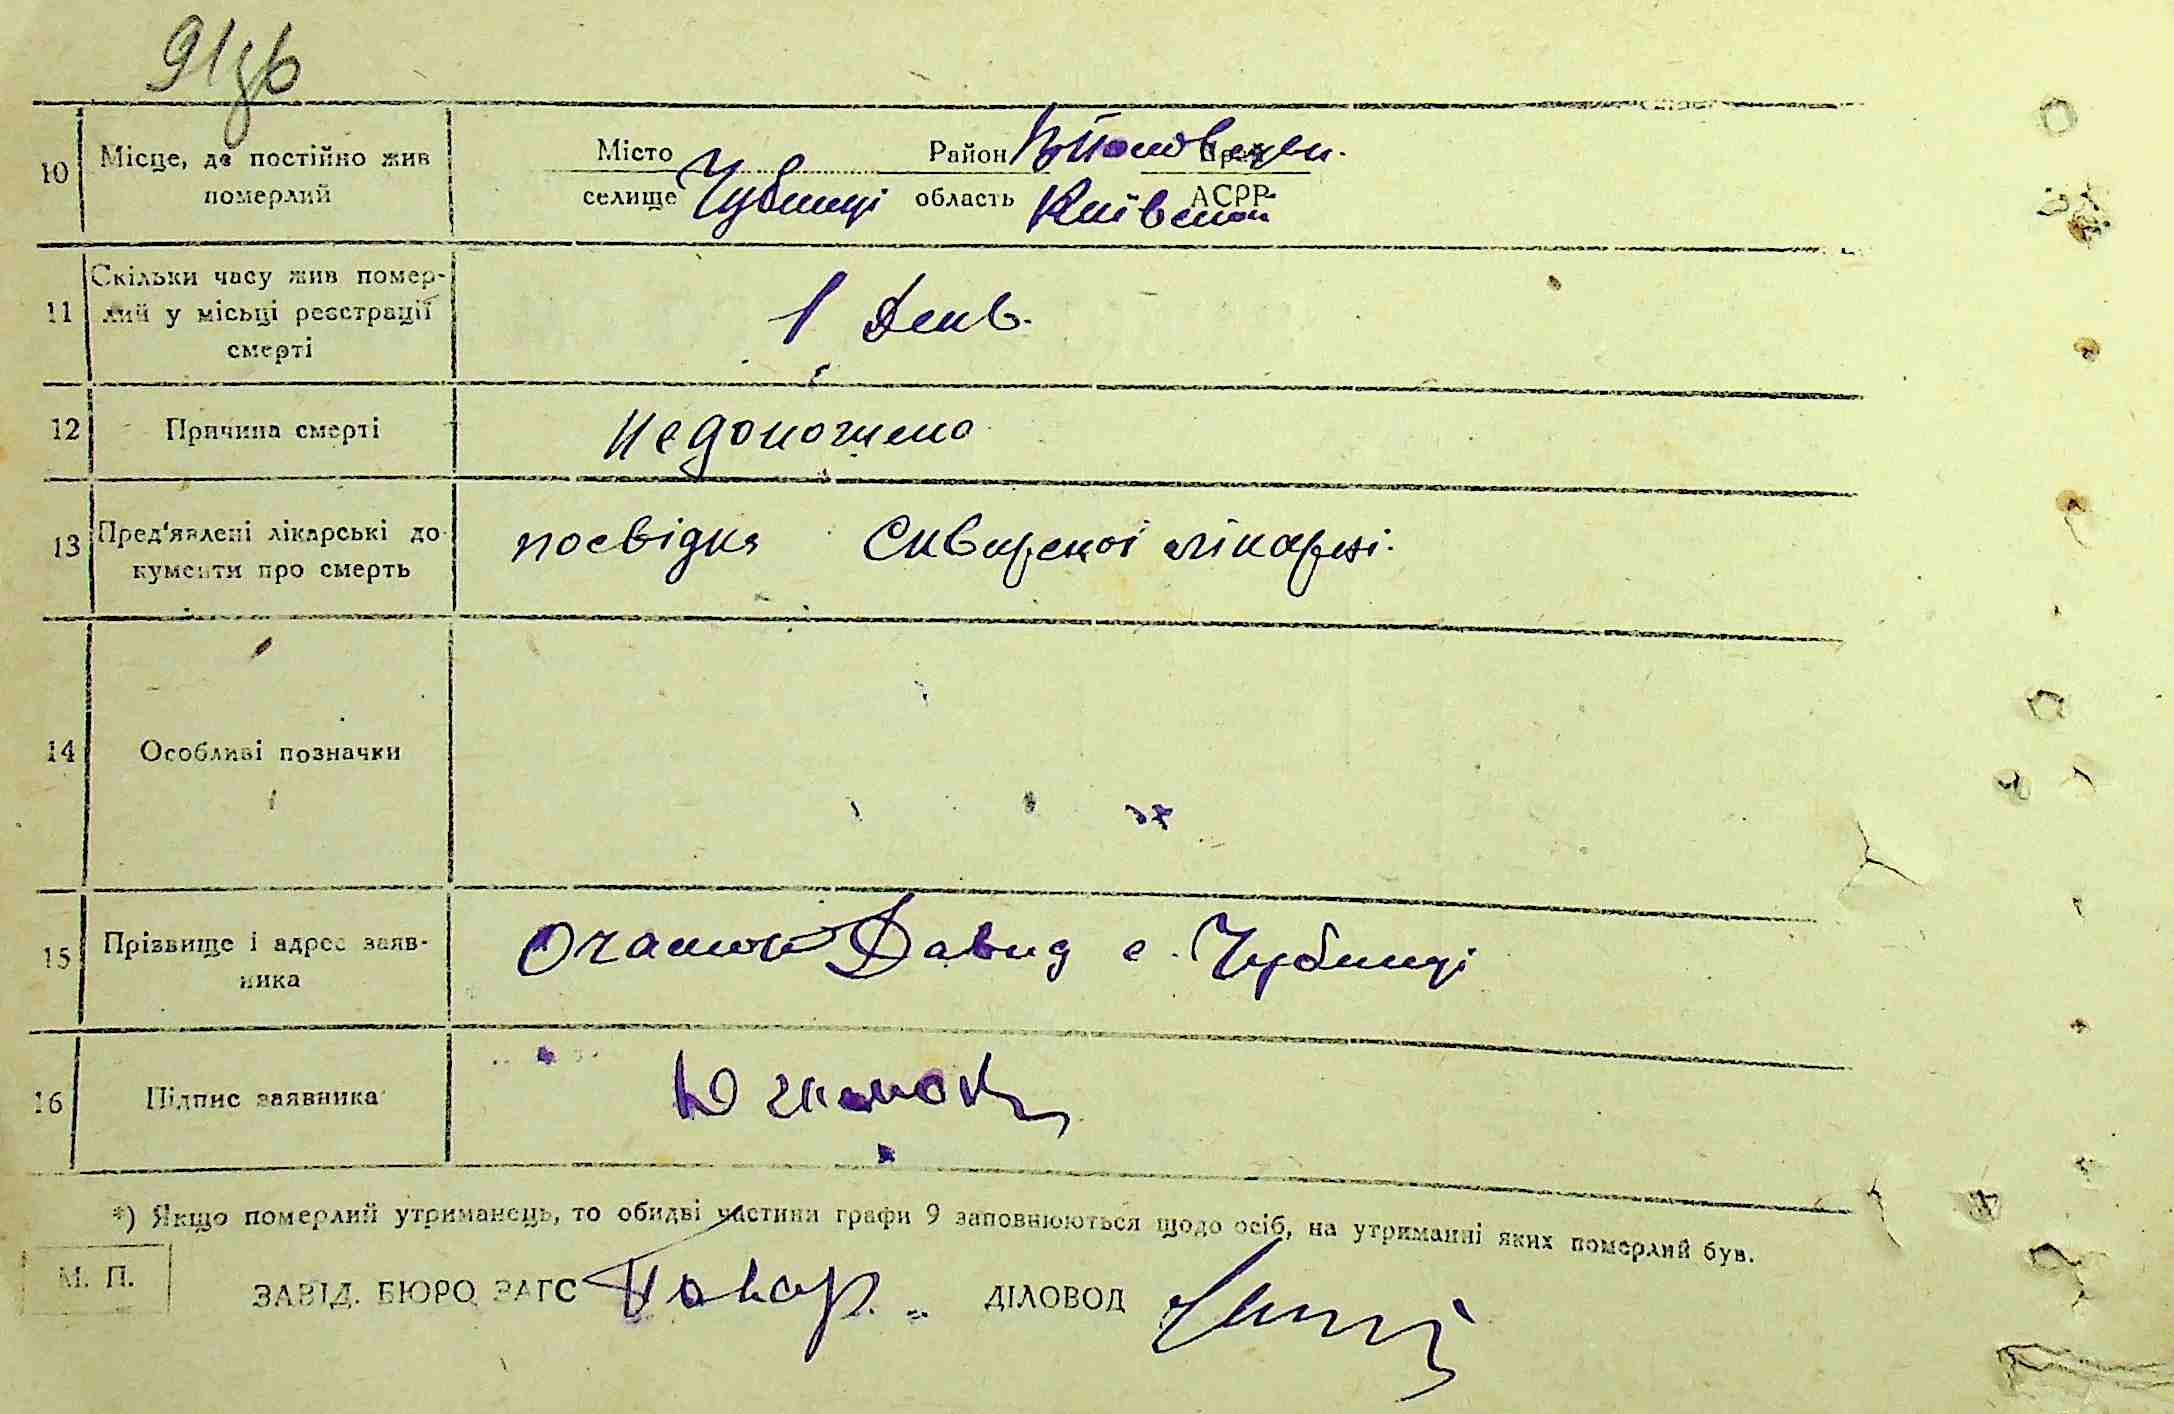 91зв
Місто Район Край
10 Місце, де постійно жив
померлий
селище Чубинці область Київської АСРР
Скільки часу жив помер-
11 лий у місьці реєстрації 1 День.
смерті
12 Причина смерті Недоношена
13 Пред'явлені лікарські до- посвідка Сквирскої лікарні.
кументи про смерть
14 Особливі позначки
15 Прізвище і адрес заяв- Давид с. Чубинці
ника
16 Підпис заявника
*) Якщо померлий утриманець, то обидві частини графи 9 заповнюються щодо осіб, на утриманні яких померлий був.
М. П.
ЗАВІД. БЮРО ЗАГС ДІЛОВОД